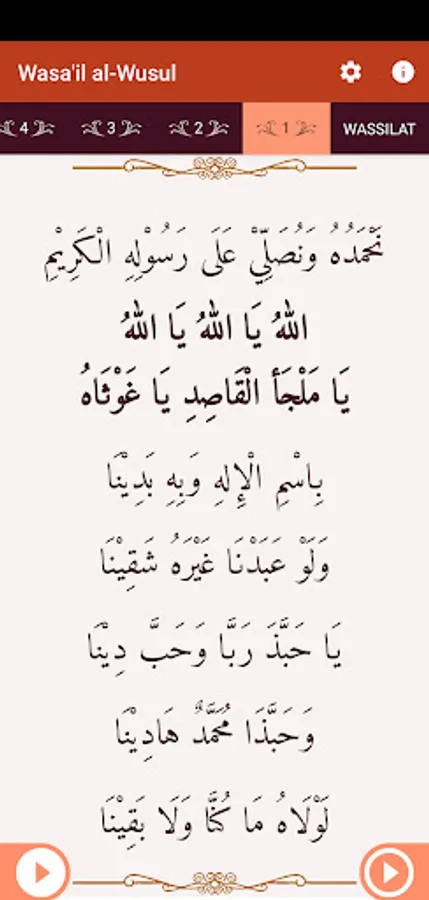 Wasa'il al-Wusul
4 3 2 1 WASSILAT
نَحْمَدُهُ وَنُصَلِّيْ عَلَى رَسُوْلِهِ الْكَرِيْمِ
اللهُ يَا اللهُ يَا اللهُ
يَا مَلْجَأَ الْقَاصِدِ يَا غَوْثَاهُ
بِاسْمِ الْإِلهِ وَبِهِ بَدِيْنَا
وَلَوْ عَبَدْنَا غَيْرَهُ شَقِيْنَا
يَا حَبَّذَ رَبَّا وَحَبَّ دِيْنَا
وَحَبَّذَا مُحَمَّدٌ هَادِيْنَا
لَوْلَاهُ مَا كُنَّا وَلَا بَقِيْنَا